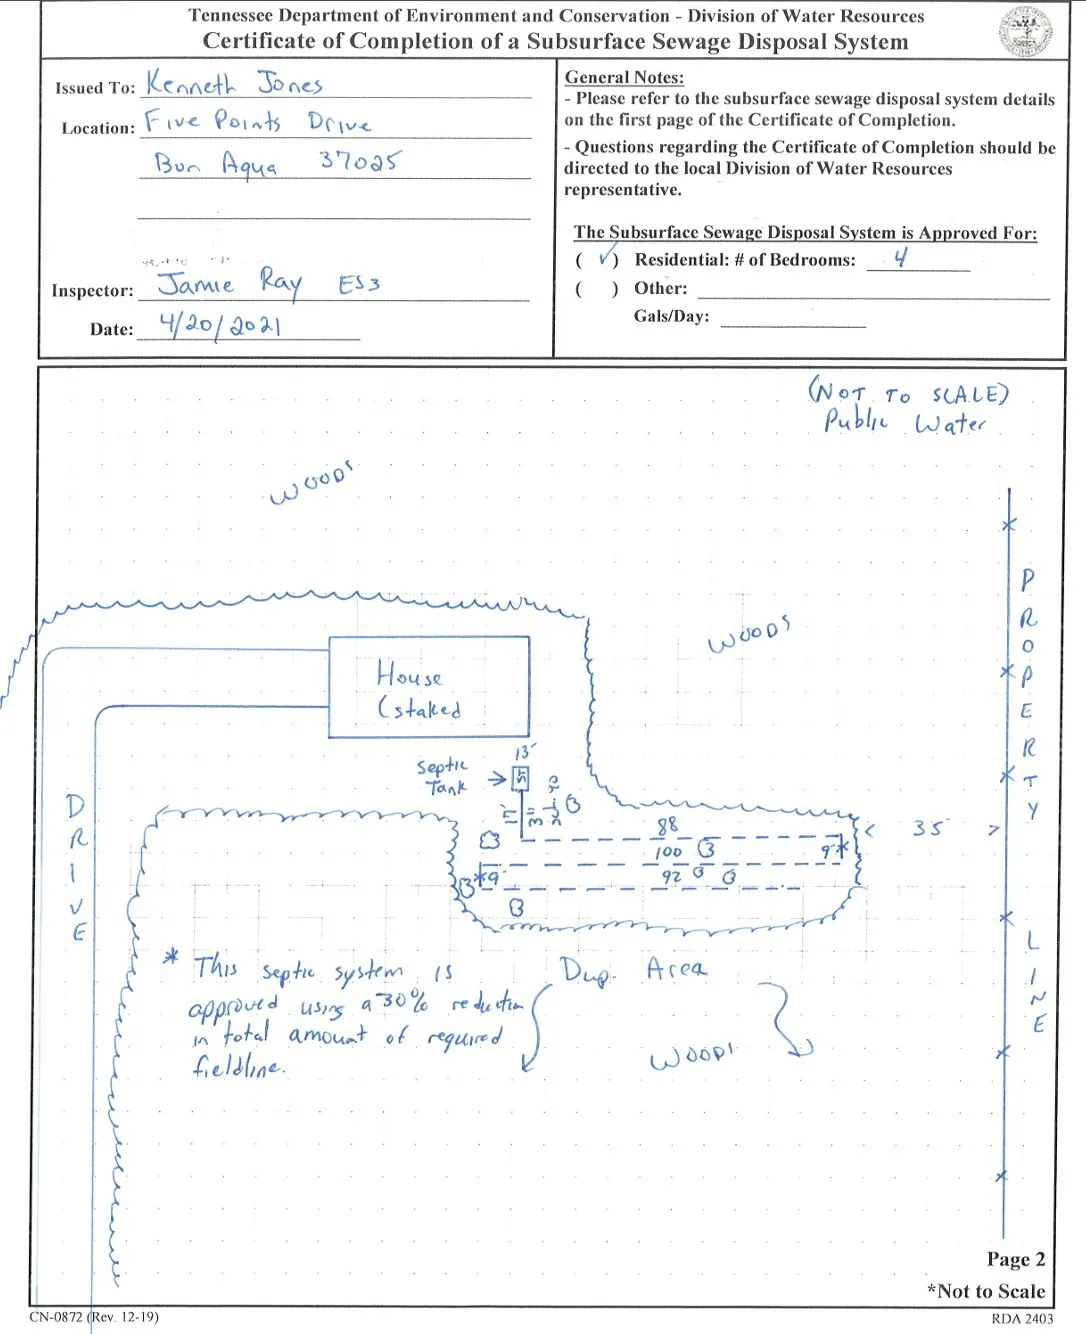 Tennessee Department of Environment and Conservation - Division of Water Resources
Certificate of Completion of a Subsurface Sewage Disposal System
Issued To: Kenneth Jones
Location: Five Points Drive
Bon Aqua 37025
Inspector: Jamie Ray ES3
Date: 4/20/2021
General Notes:
- Please refer to the subsurface sewage disposal system details
on the first page of the Certificate of Completion.
- Questions regarding the Certificate of Completion should be
directed to the local Division of Water Resources
representative.
The Subsurface Sewage Disposal System is Approved For:
( ✓ ) Residential: # of Bedrooms: 4
( ) Other:
Gals/Day:
(NOT TO SCALE)
Public Water
WOODS
WOODS
PROPERTY LINE
House
(staked
13'
Septic
Tank
ST
DRIVE
88
35'
100
9'
*
*9'
92
* This septic system is
approved using a 30% reduction
in total amount of required
fieldline.
Dup. Area
WOODS
Page 2
*Not to Scale
CN-0872 (Rev. 12-19)
RDA 2403